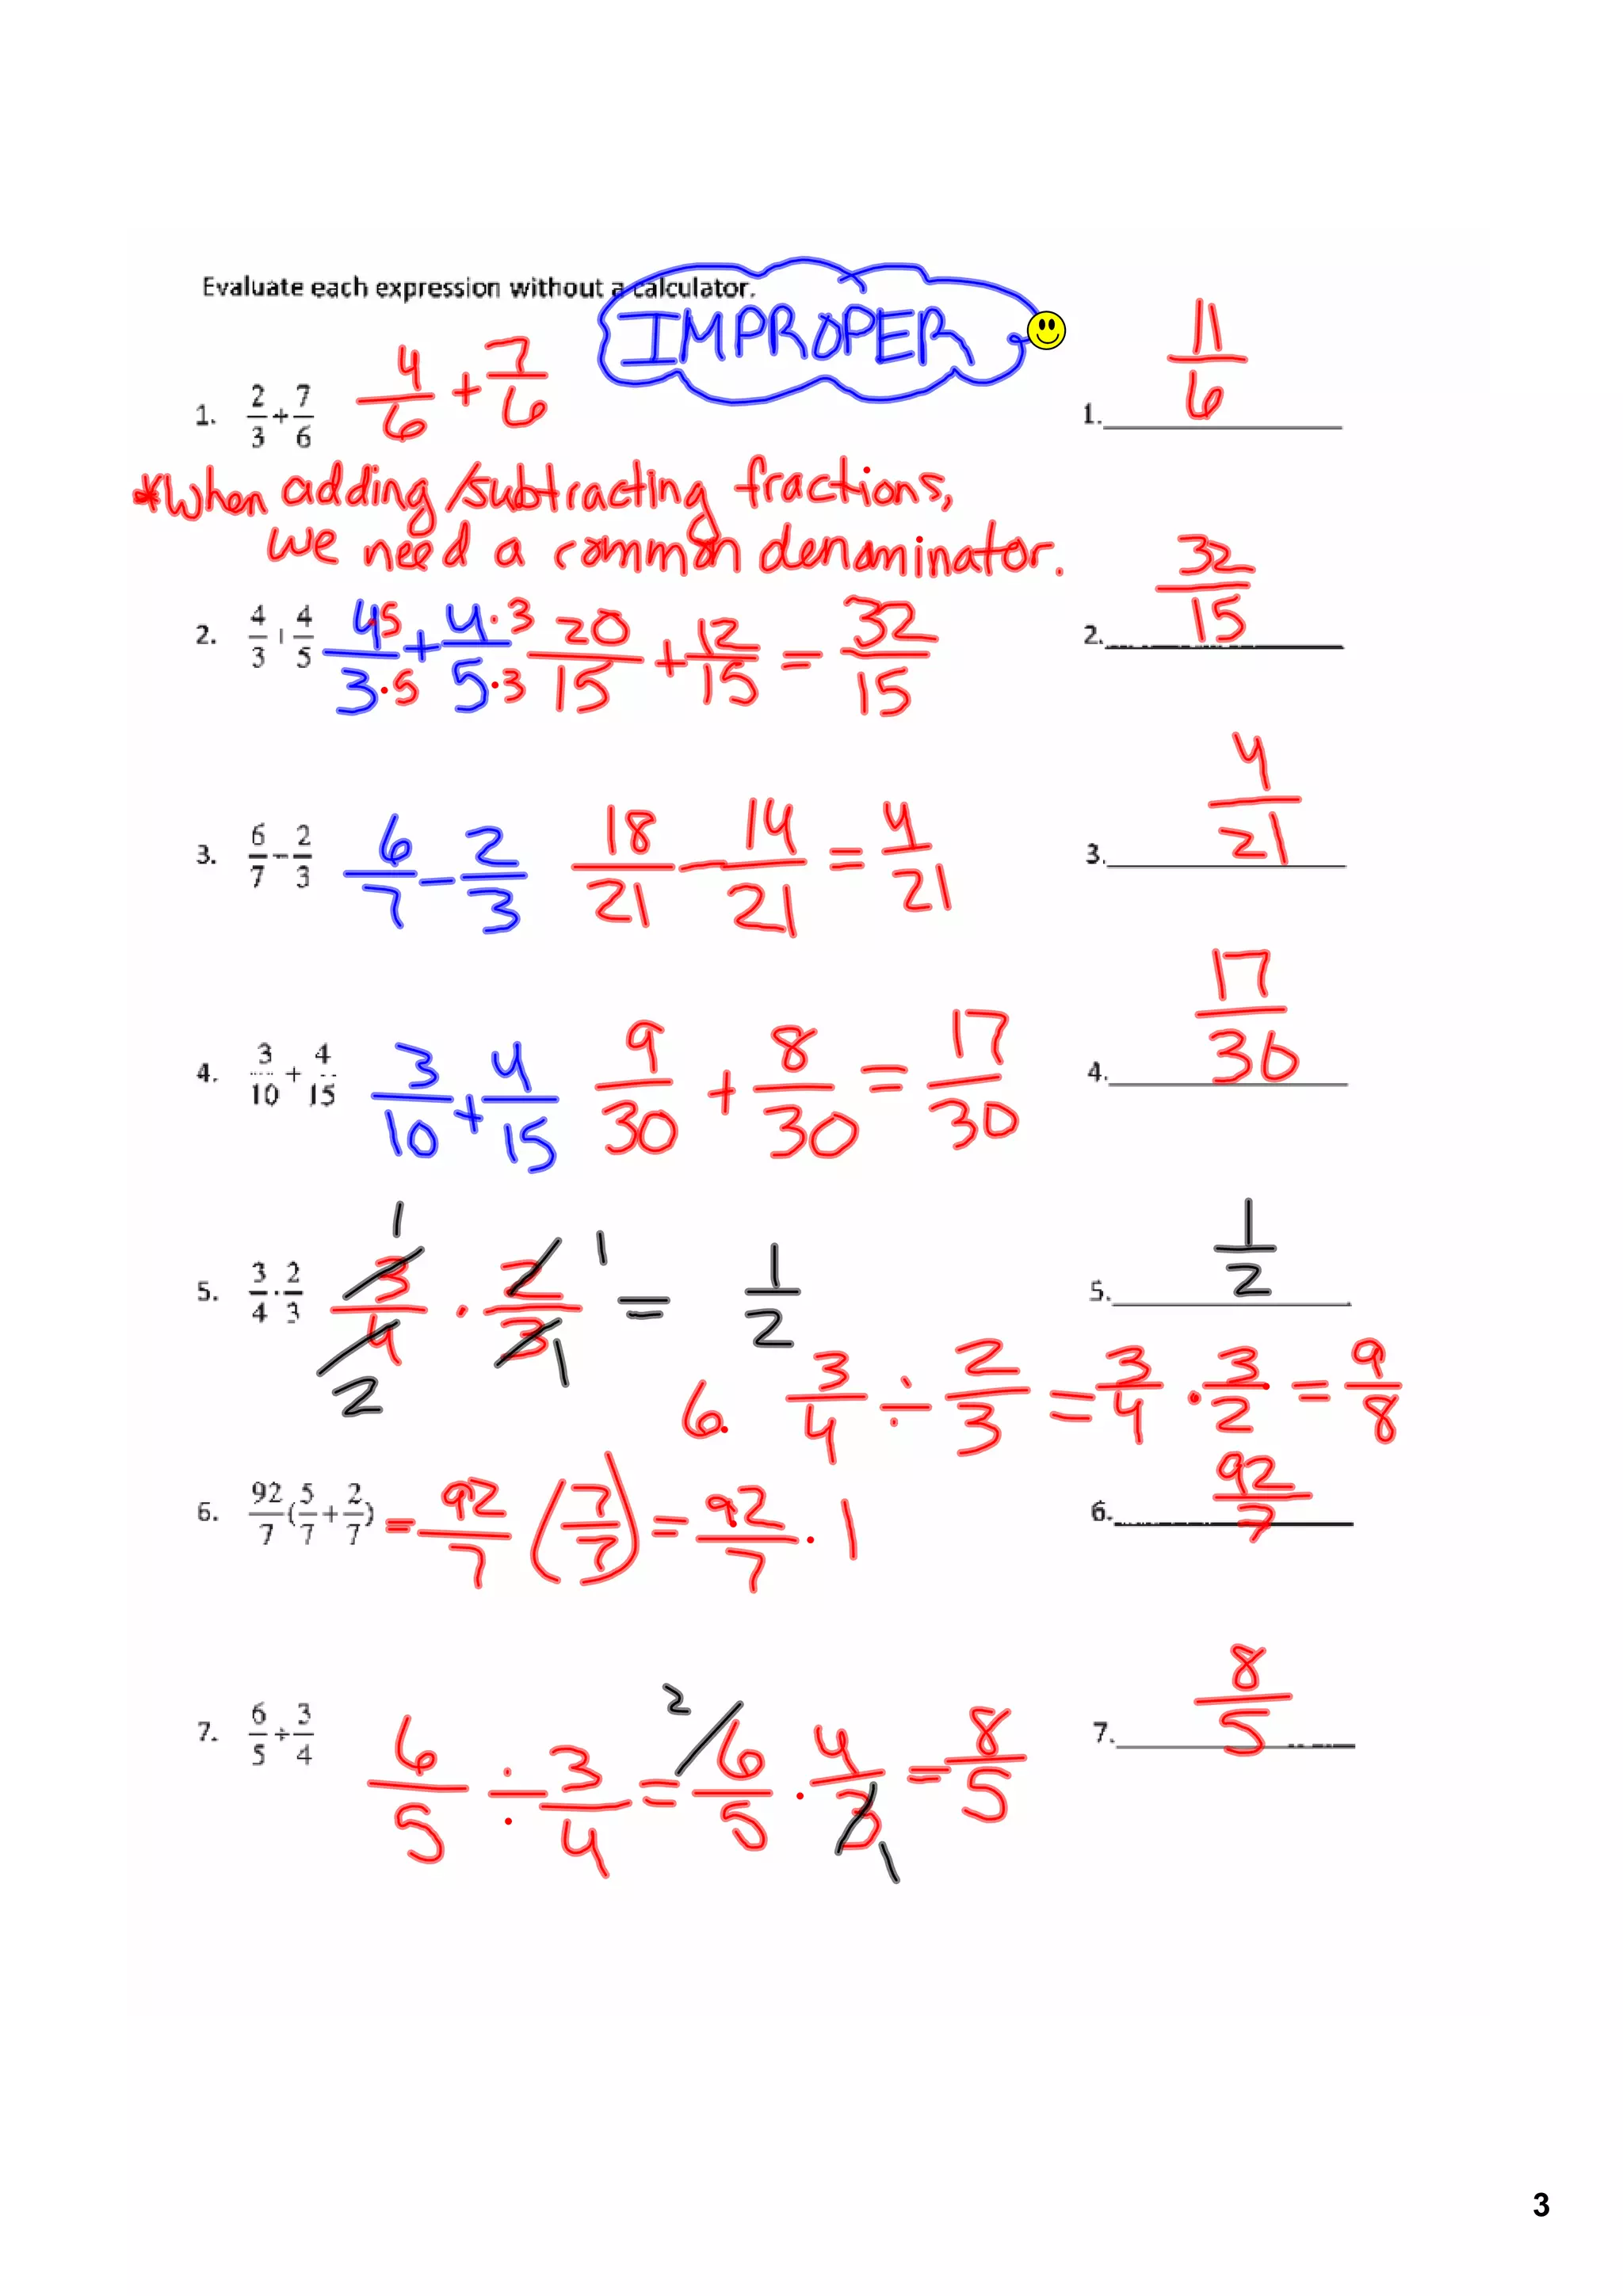 Evaluate each expression without a calculator.
IMPROPER
1. 2/3 + 7/6 4/6 + 7/6 1. 11/6
*When adding/subtracting fractions,
we need a common denominator.
2. 4/3 + 4/5 4·5/3·5 + 4·3/5·3 20/15 + 12/15 = 32/15 2. 32/15
3. 6/7 − 2/3 6/7 − 2/3 18/21 − 14/21 = 4/21 3. 4/21
4. 3/10 + 4/15 3/10 + 4/15 9/30 + 8/30 = 17/30 4. 17/30
5. 3/4 · 2/3 1 3/4 2 · 2/3 1 1 = 1/2 5. 1/2
6. 3/4 ÷ 2/3 = 3/4 · 3/2 = 9/8
6. 92/7 (5/7 + 2/7) = 92/7 (7/7) = 92/7 · 1 6. 92/7
7. 6/5 ÷ 3/4 6/5 ÷ 3/4 = 2 6/5 · 4/3 1 = 8/5 7. 8/5
3